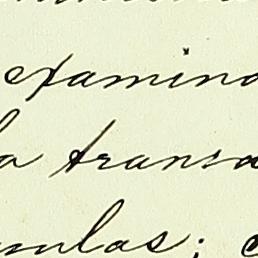 examina
la transa
mulas; e